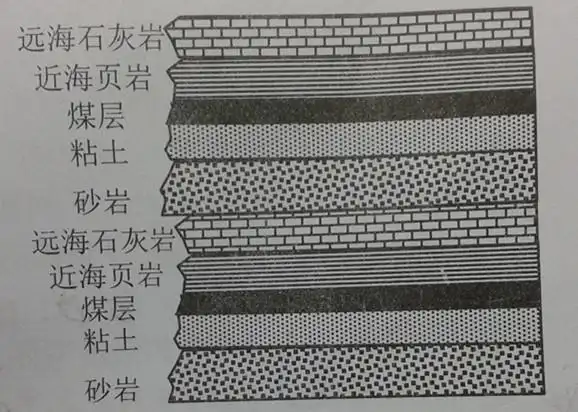 远海石灰岩
近海页岩
煤层
粘土
砂岩
远海石灰岩
近海页岩
煤层
粘土
砂岩